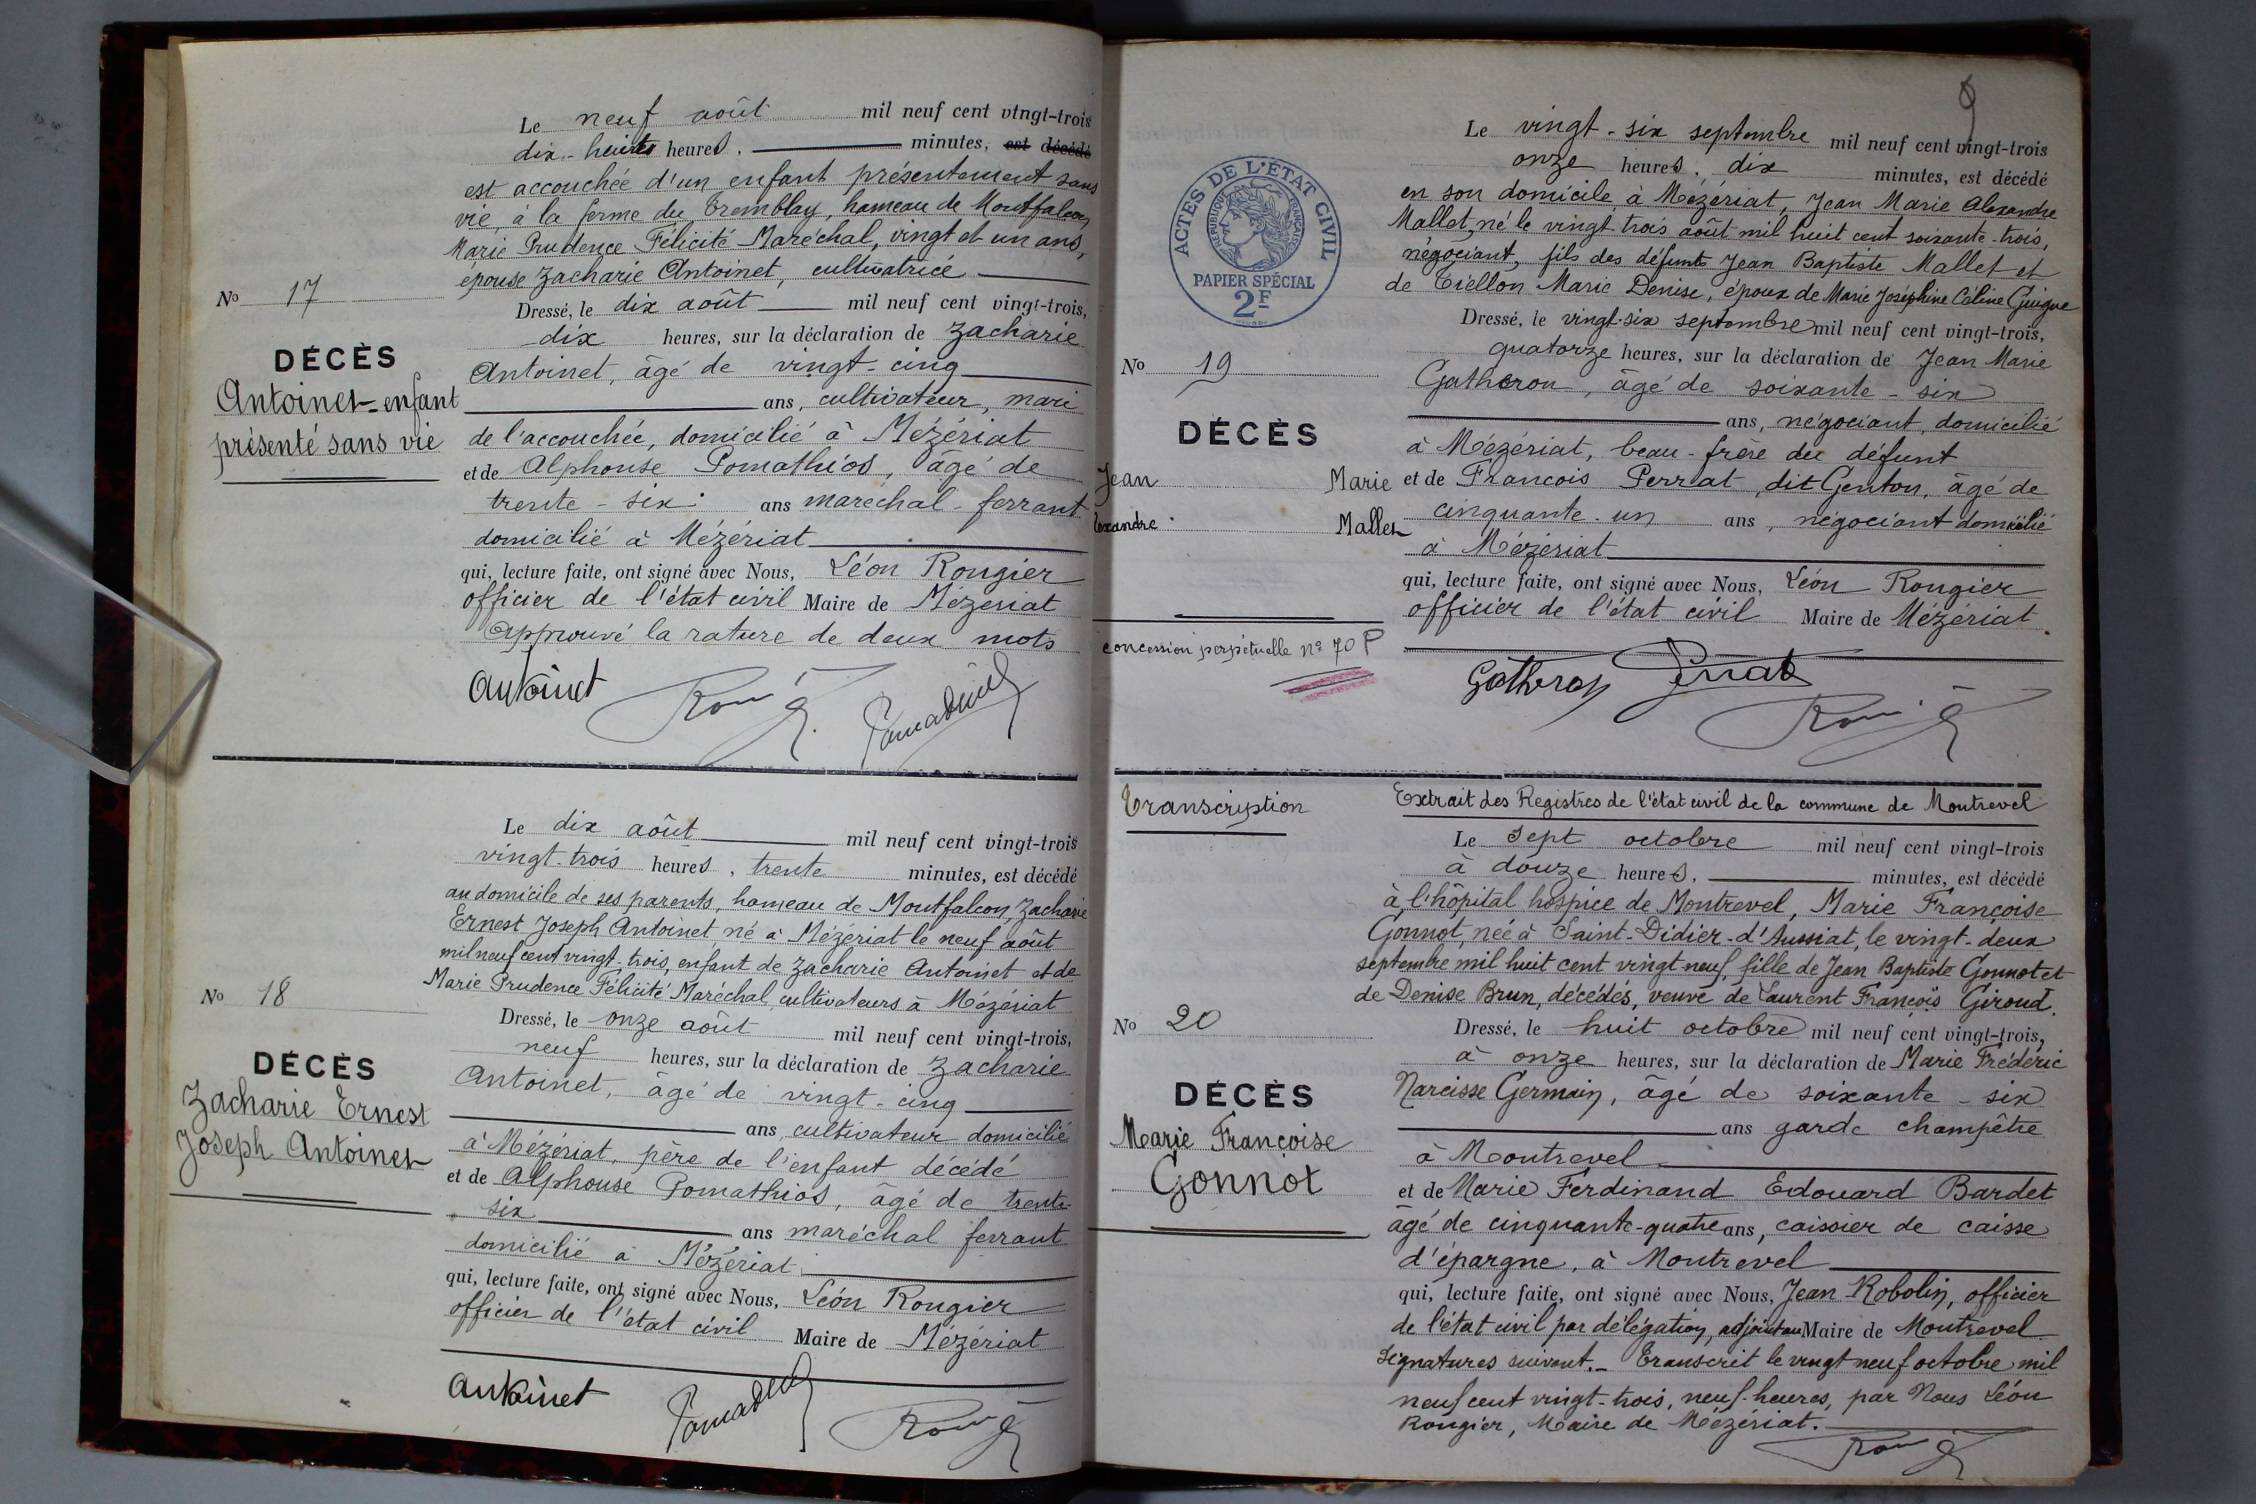 Le neuf août mil neuf cent vingt-trois
dix-huit heures. minutes, est décédé
est accouchée d'un enfant présentement sans
vie, à la ferme du Tremblay, hameau de Montfalcon,
Marie Prudence Félicité Maréchal, vingt et un ans,
épouse Zacharie Antoinet, cultivatrice
N° 17
Dressé, le dix août mil neuf cent vingt-trois,
dix heures, sur la déclaration de Zacharie
DÉCÈS
Antoinet, âgé de vingt-cinq
Antoinet enfant
ans, cultivateur, mari
présenté sans vie
de l'accouchée, domicilié à Mézériat
et de Alphonse Pomathios, âgé de
trente-six ans maréchal-ferrant
domicilié à Mézériat
qui, lecture faite, ont signé avec Nous, Léon Rougier
officier de l'état civil Maire de Mézériat
Approuvé la rature de deux mots
Antoinet
Le dix août mil neuf cent vingt-trois
vingt-trois heures, trente minutes, est décédé
au domicile de ses parents, hameau de Montfalcon, Zacharie
Ernest Joseph Antoinet, né à Mézériat le neuf août
mil neuf cent vingt-trois, enfant de Zacharie Antoinet et de
Marie Prudence Félicité Maréchal, cultivateurs à Mézériat
N° 18
Dressé, le onze août mil neuf cent vingt-trois,
neuf heures, sur la déclaration de Zacharie
DÉCÈS
Antoinet, âgé de vingt-cinq
Zacharie Ernest
ans, cultivateur domicilié
Joseph Antoinet
à Mézériat, père de l'enfant décédé
et de Alphonse Pomathios, âgé de trente-
six ans maréchal ferrant
domicilié à Mézériat
qui, lecture faite, ont signé avec Nous, Léon Rougier
officier de l'état civil Maire de Mézériat
Antoinet
Le vingt-six septembre mil neuf cent vingt-trois
onze heures, dix minutes, est décédé
en son domicile à Mézériat, Jean Marie Alexandre
Mallet, né le vingt-trois août mil huit cent soixante-trois,
négociant, fils des défunts Jean Baptiste Mallet et
de Tiellon Marie Denise, époux de Marie Joséphine Céline Guigue
ACTES DE L'ÉTAT CIVIL
RÉPUBLIQUE FRANÇAISE
PAPIER SPÉCIAL
2F
Dressé, le vingt-six septembre mil neuf cent vingt-trois,
quatorze heures, sur la déclaration de Jean Marie
N° 19
Gatheron, âgé de soixante-six
ans, négociant, domicilié
DÉCÈS
à Mézériat, beau-frère du défunt
Jean Marie
et de François Perrat, dit Genton, âgé de
lexandre Mallet
cinquante-un ans, négociant domicilié
à Mézériat
qui, lecture faite, ont signé avec Nous, Léon Rougier
officier de l'état civil Maire de Mézériat.
concession perpétuelle n° 70 P
Gatheron Perrat
Transcription
Extrait des Registres de l'état civil de la commune de Montrevel
Le sept octobre mil neuf cent vingt-trois
à douze heures, minutes, est décédé
à l'hôpital hospice de Montrevel, Marie Françoise
Gonnot, née à Saint-Didier-d'Aussiat, le vingt-deux
septembre mil huit cent vingt-neuf, fille de Jean Baptiste Gonnot et
de Denise Brun, décédés, veuve de Laurent François Giroud.
N° 20
Dressé, le huit octobre mil neuf cent vingt-trois,
à onze heures, sur la déclaration de Marie Frédéric
DÉCÈS
Narcisse Germain, âgé de soixante-six
Marie Françoise
ans garde champêtre
Gonnot
à Montrevel
et de Marie Ferdinand Edouard Bardet
âgé de cinquante-quatre ans, caissier de caisse
d'épargne, à Montrevel
qui, lecture faite, ont signé avec Nous, Jean Robolin, officier
de l'état civil par délégation, adjoint au Maire de Montrevel
Signatures suivent.- Transcrit le vingt neuf octobre mil
neuf cent vingt-trois, neuf heures, par Nous Léon
Rougier, Maire de Mézériat.